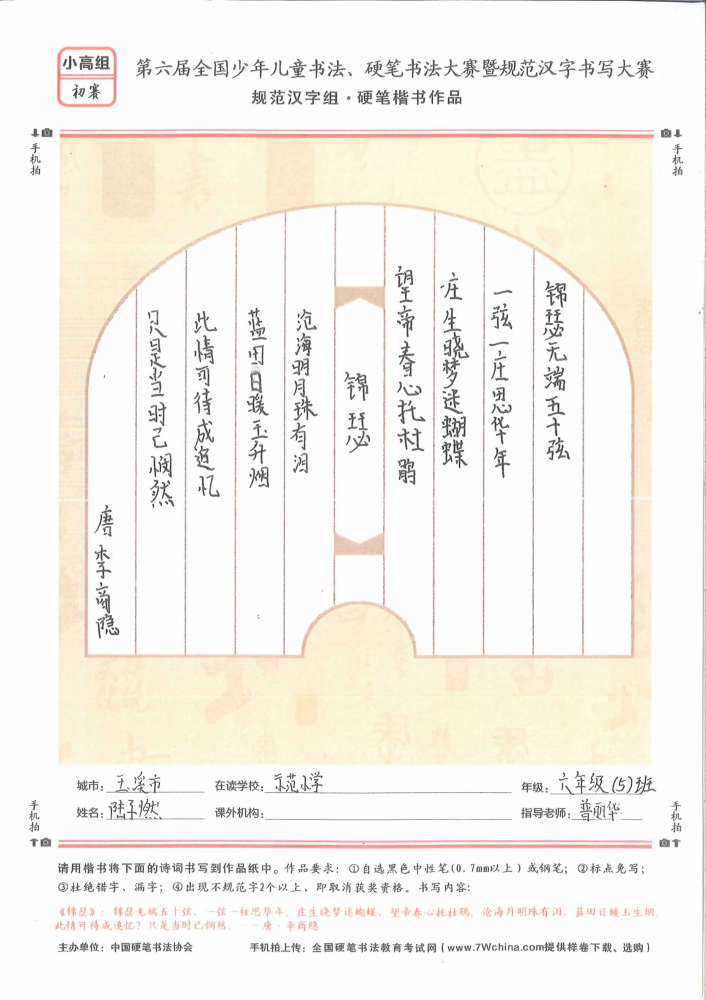 小高组
初赛
第六届全国少年儿童书法、硬笔书法大赛暨规范汉字书写大赛
规范汉字组·硬笔楷书作品
手机拍
手机拍
锦瑟无端五十弦
一弦一庄思华年
庄生晓梦迷蝴蝶
望帝春心托杜鹃
锦瑟
沧海明月珠有泪
蓝田日暖玉升烟
此情可待成追忆
只是当时已惘然
唐 李商隐
城市：玉溪市 在读学校：示范小学 年级：六年级(5)班
姓名：陆子燃 课外机构： 指导老师：普丽华
手机拍
手机拍
请用楷书将下面的诗词书写到作品纸中。作品要求：①自选黑色中性笔(0.7mm以上)或钢笔；②标点免写；
③杜绝错字、漏字；④出现不规范字2个以上，即取消获奖资格。书写内容：
《锦瑟》：锦瑟无端五十弦，一弦一柱思华年。庄生晓梦迷蝴蝶，望帝春心托杜鹃。沧海月明珠有泪，蓝田日暖玉生烟。
此情可待成追忆？只是当时已惘然。——唐·李商隐
主办单位：中国硬笔书法协会 手机拍上传：全国硬笔书法教育考试网(www.7Wchina.com提供样卷下载、选购)